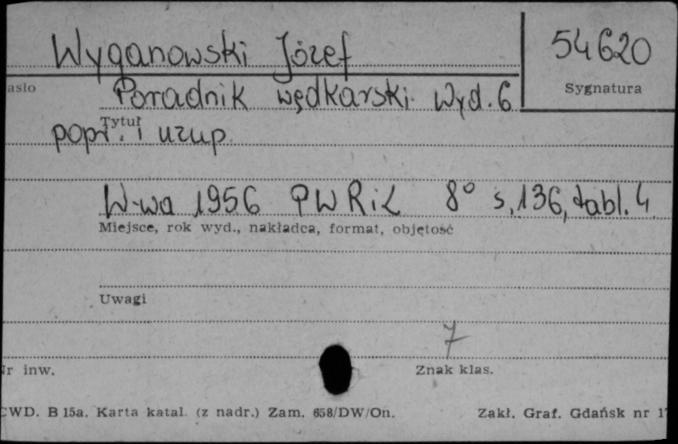 Wyganowski Józef
54620
asło
Sygnatura
Poradnik wędkarski. Wyd. 6
Tytuł
popr. i uzup.
W-wa 1956 PWRiL 8° s. 136, tabl. 4
Miejsce, rok wyd., nakładca, format, objętość
Uwagi
7
r inw.
Znak klas.
CWD. B 15a. Karta katal. (z nadr.) Zam. 658/DW/On.
Zakł. Graf. Gdańsk nr 1